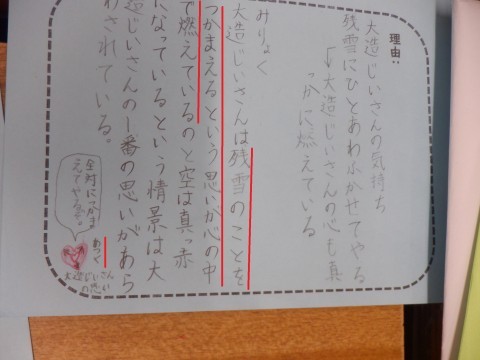 理由:
大造じいさんの気持ち
残雪にひとあわふかせてやる
↓大造じいさんの心も真
っかに燃えている
みりょく
大造じいさんは残雪のことを
つかまえるという思いが心の中
で燃えているのと空は真っ赤
になっているという情景は大
造じいさんの一番の思いがあら
わされている。
生けどりにつかま
えてやるぞ。
あつく
大造じいさん
の思い